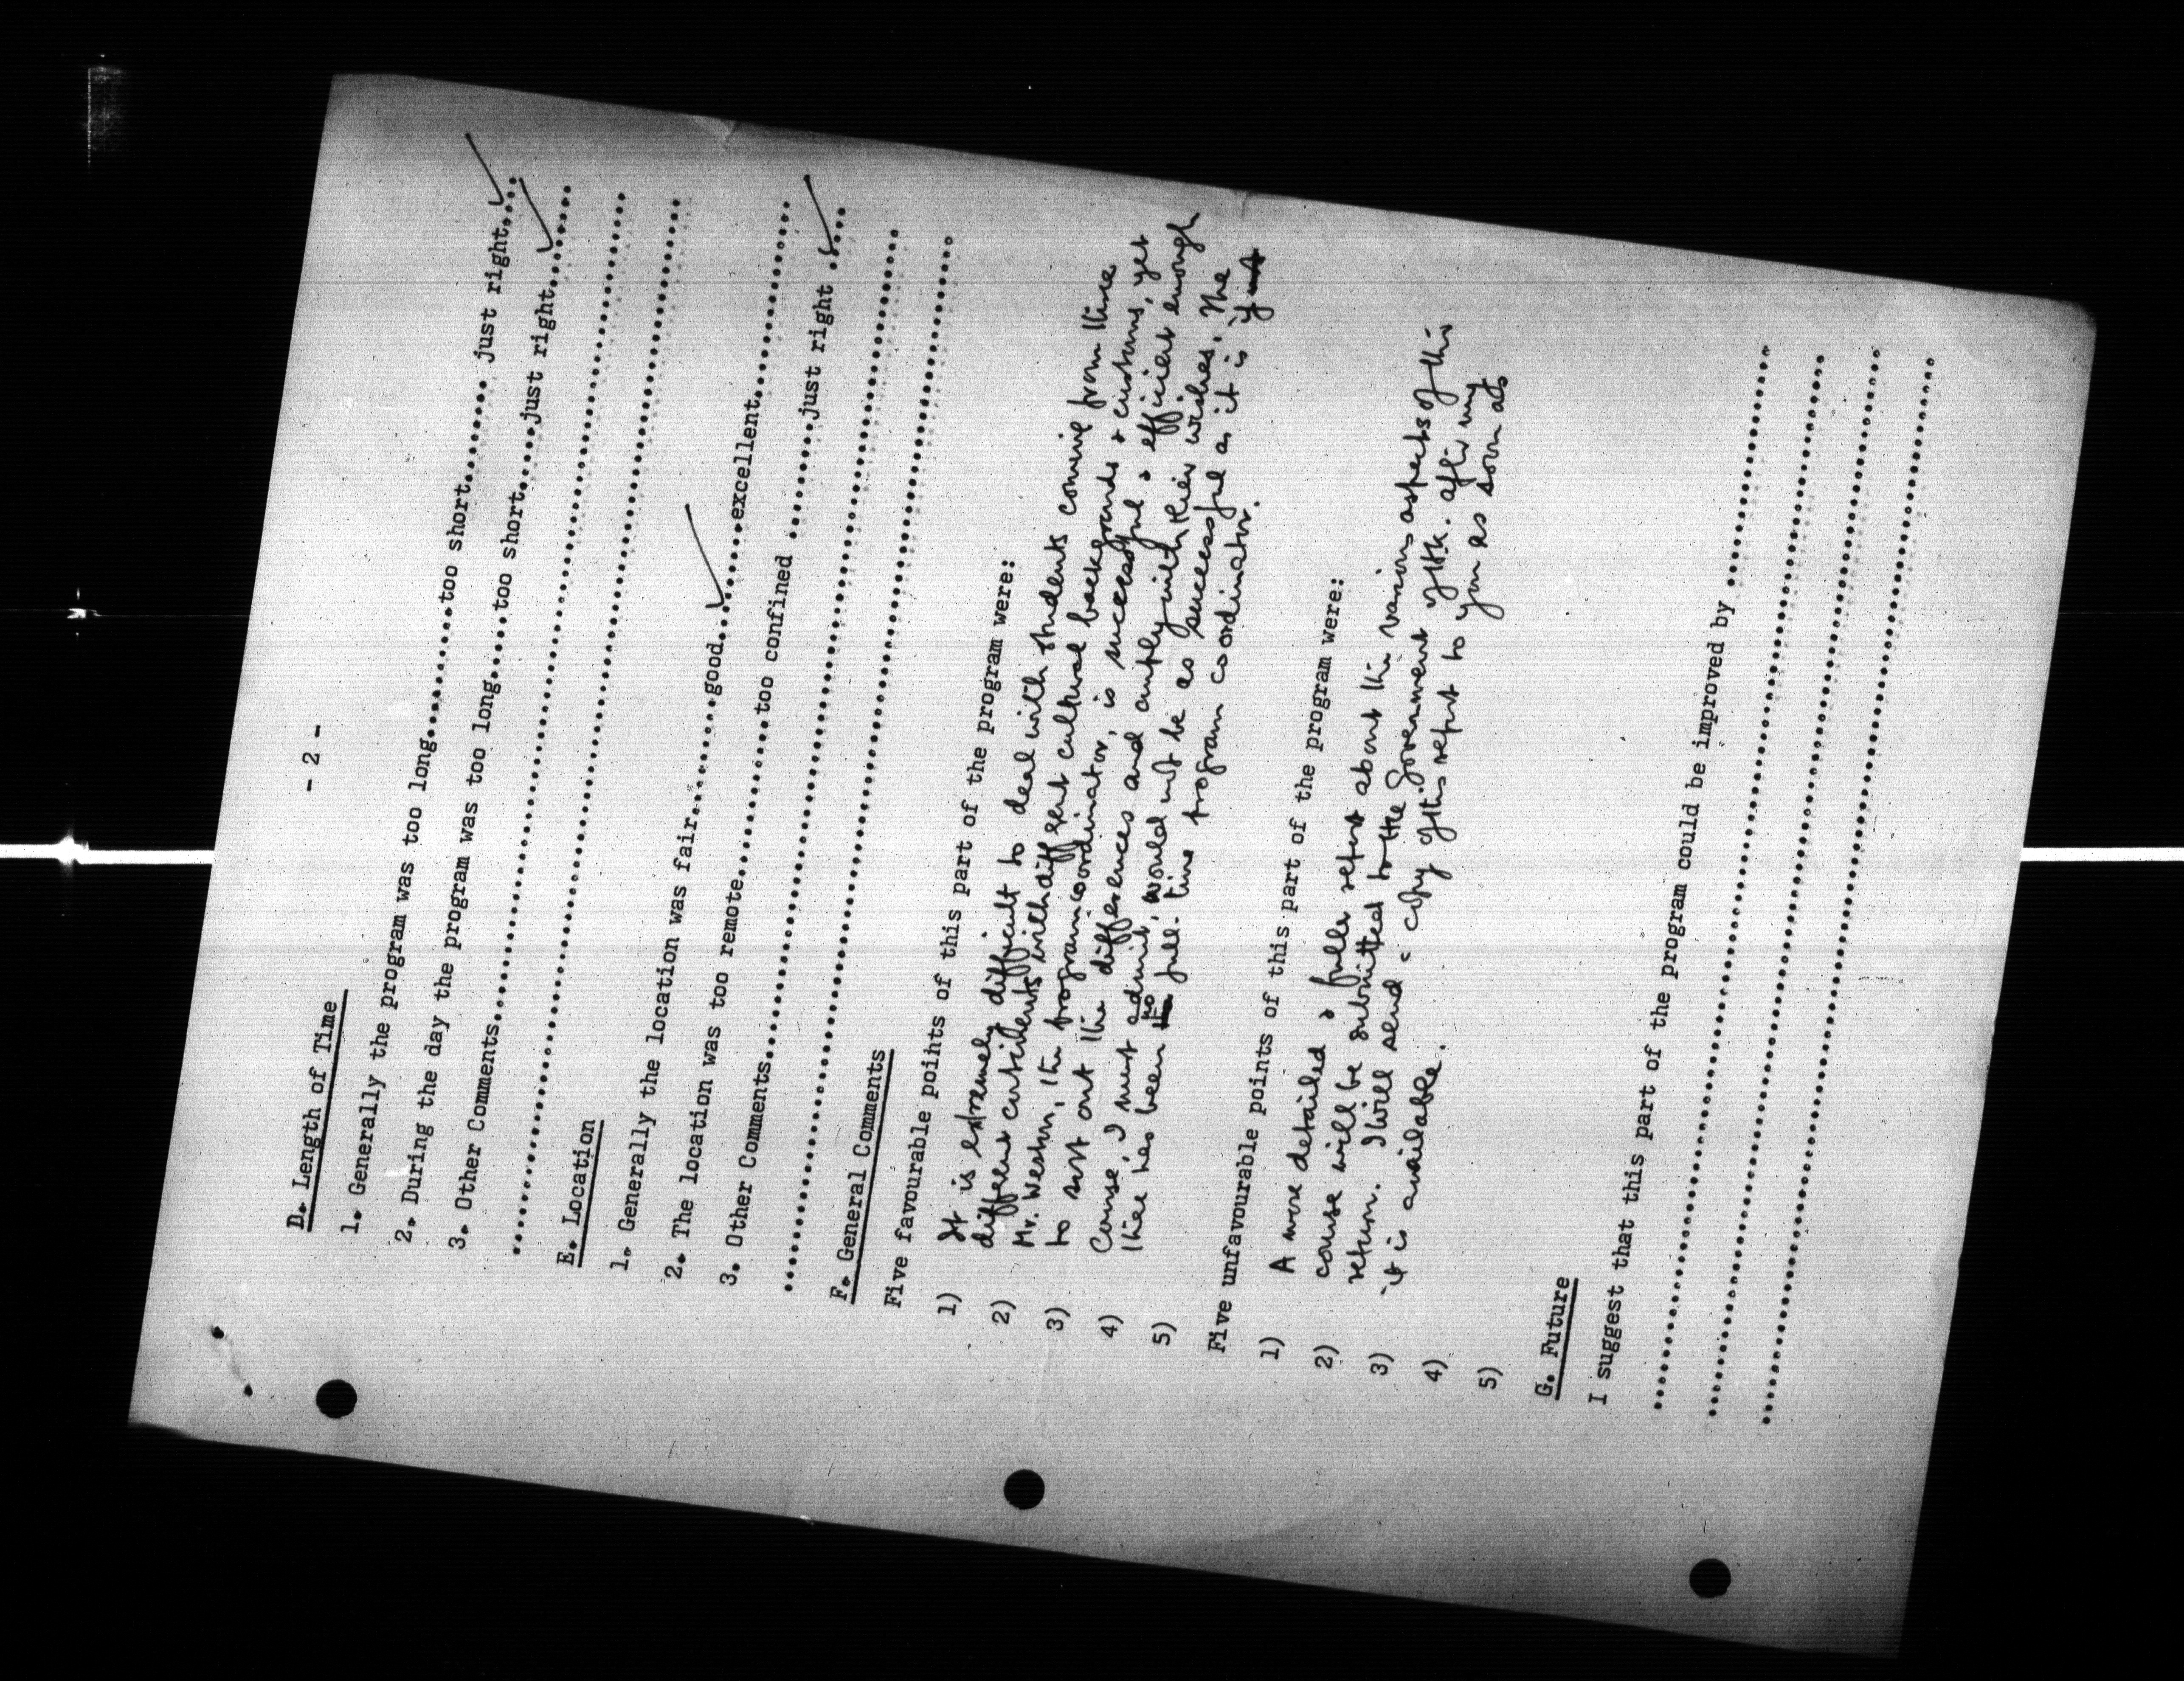 - 2 -
D. Length of Time
1. Generally the program was too long........too short........ just right....
2. During the day the program was too long....too short....just right......
3. Other Comments..........................................................
...........................................................................
E. Location
1. Generally the location was fair........good......excellent..............
2. The location was too remote...........too confined ........just right .....
3. Other Comments..........................................................
...........................................................................
F. General Comments
Five favourable points of this part of the program were:
1) It is extremely difficult to deal with students coming from three
2) different continents with different cultural backgrounds & customs, yet
Mr. Weston, the program coordinator, is successful & efficient enough
3) to sort out the differences and comply with their wishes. The
4) Course, I must admit, would not be as successful as it is if
5) there has been no full-time program coordinator.
Five unfavourable points of this part of the program were:
1) A more detailed & fuller report about the various aspects of this
2) course will be submitted to the Government of H.K. after my
3) return. I will send a copy of this report to you as soon as
4) it is available.
5)
G. Future
I suggest that this part of the program could be improved by ..............
...........................................................................
...........................................................................
...........................................................................